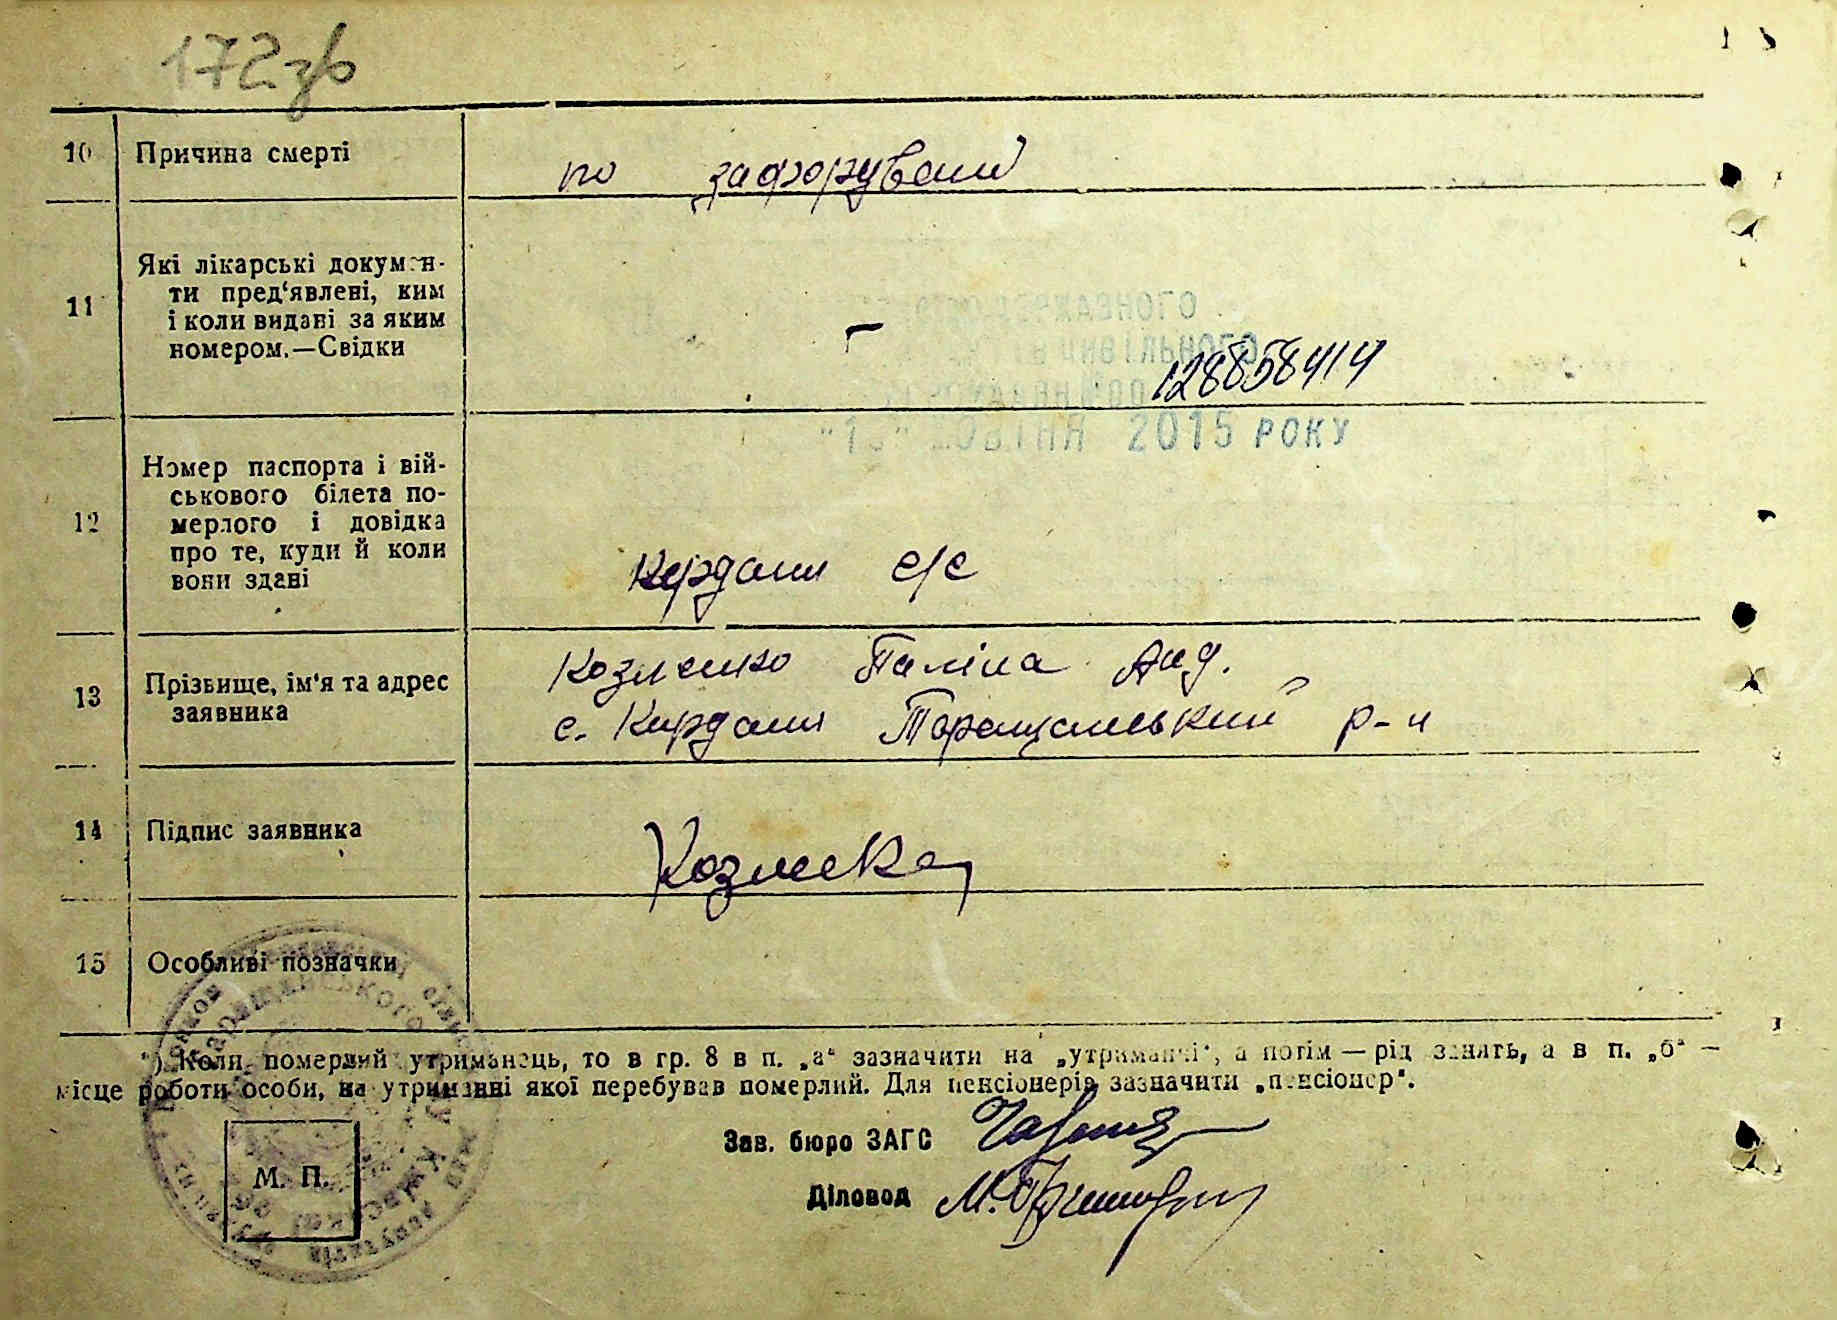 172зв
10 Причина смерті
по
11 Які лікарські докумен-
ти пред‘явлені, ким
і коли видані за яким
номером.—Свідки
12885841
2015 РОКУ
12 Номер паспорта і вій-
ськового білета по-
мерлого і довідка
про те, куди й коли
вони здані
Кердани с/с
13 Прізвище, ім‘я та адрес
заявника
Козленко Галіна Анд.
с. Кирдани Таращанський р-н
14 Підпис заявника
15 Особливі позначки
*) Коли померлий утриманець, то в гр. 8 в п. „а“ зазначити на „утриманні“, а потім — рід занять, а в п. „б“ —
місце роботи особи, на утриманні якої перебував померлий. Для пенсіонерів зазначити „пенсіонер“.
Зав. бюро ЗАГС
М. П.
Діловод